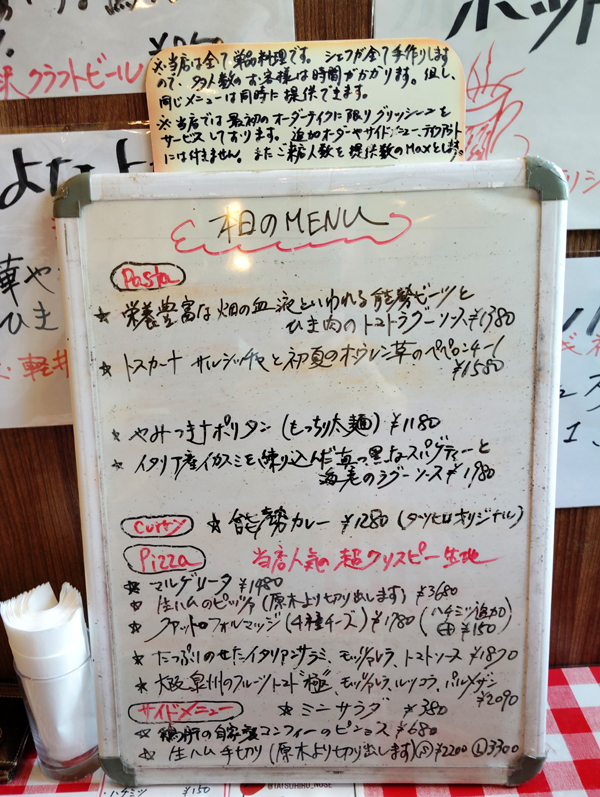 ※当店は全て単品料理です。シェフが全て手作りします
ので、多人数のお客様は時間がかかります。但し、
同じメニューは同時に提供できます。
※当店では最初のオーダーテイクに限りグリッシーニを
サービスしております。追加オーダーやサイドメニュー、テイクアウト
には付きません。またご来店人数を提供数のMaxとします。
クラフトビール
本日のMENU
Pasta
☆栄養豊富な畑の血液といわれる能勢ビーツと
ひき肉のトマトラグーソース ¥1380
☆トスカーナ サルシッチャと初夏のホウレン草のペペロンチーノ
¥1580
☆やみつきナポリタン(もっちり太麺) ¥1180
☆イタリア産イカスミを練り込んだ真っ黒なスパゲティーと
海老のラグーソース ¥1980
Curry ☆能勢カレー ¥1280 (タツヒロオリジナル)
Pizza 当店人気の超クリスピー生地
☆マルゲリータ ¥1480
☆生ハムのピッツァ(原木より切り出します) ¥3680
☆クアットロフォルマッジ(4種チーズ) ¥1780 (ハチミツ追加
⊕¥150)
☆たっぷりのせたイタリアンサラミ、モッツァレラ、トマトソース ¥1870
☆大阪泉州のフルーツトマト"極"、モッツァレラ、ルッコラ、パルメザン
¥2090
サイドメニュー ☆ミニサラダ ¥380
☆鶏肝の自家製コンフィーのピンチョス ¥680
☆生ハム手切り(原木より切り出します) Ⓢ¥2200 Ⓛ3300
ハチミツ ¥150
@TATSUHIRO_NOSE